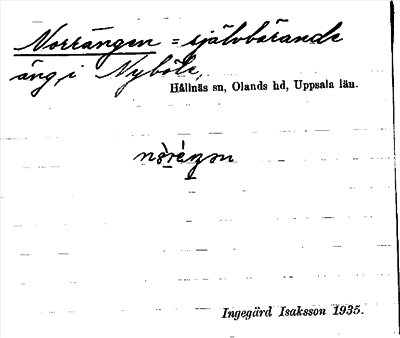 Norrängen = självbärande
äng i Nyböle,
Hållnäs sn, Olands hd, Uppsala län.
Ingegärd Isaksson 1935.